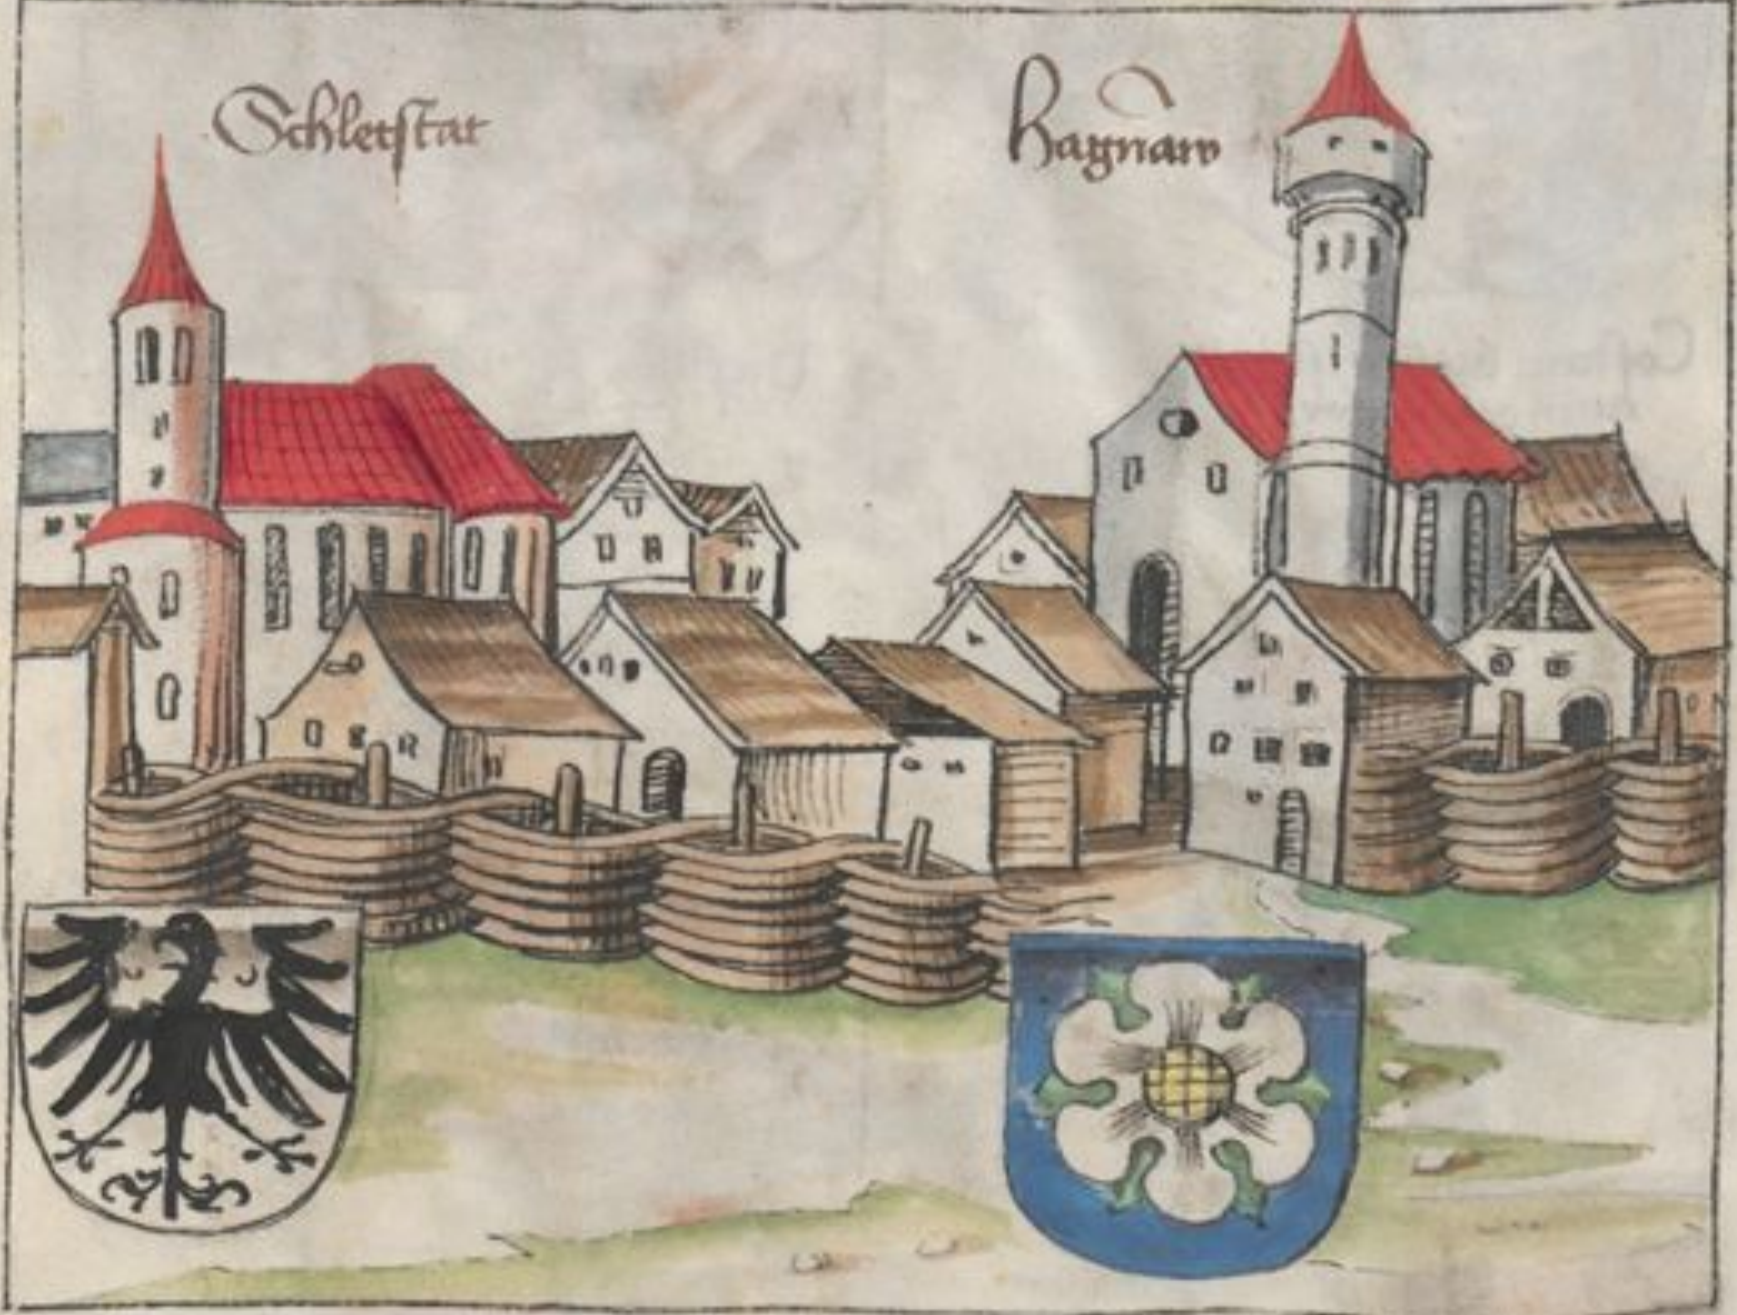 Schletstat
Hagnaw